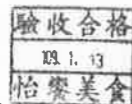 驗收合格
109. 1. 13
怡饗美食